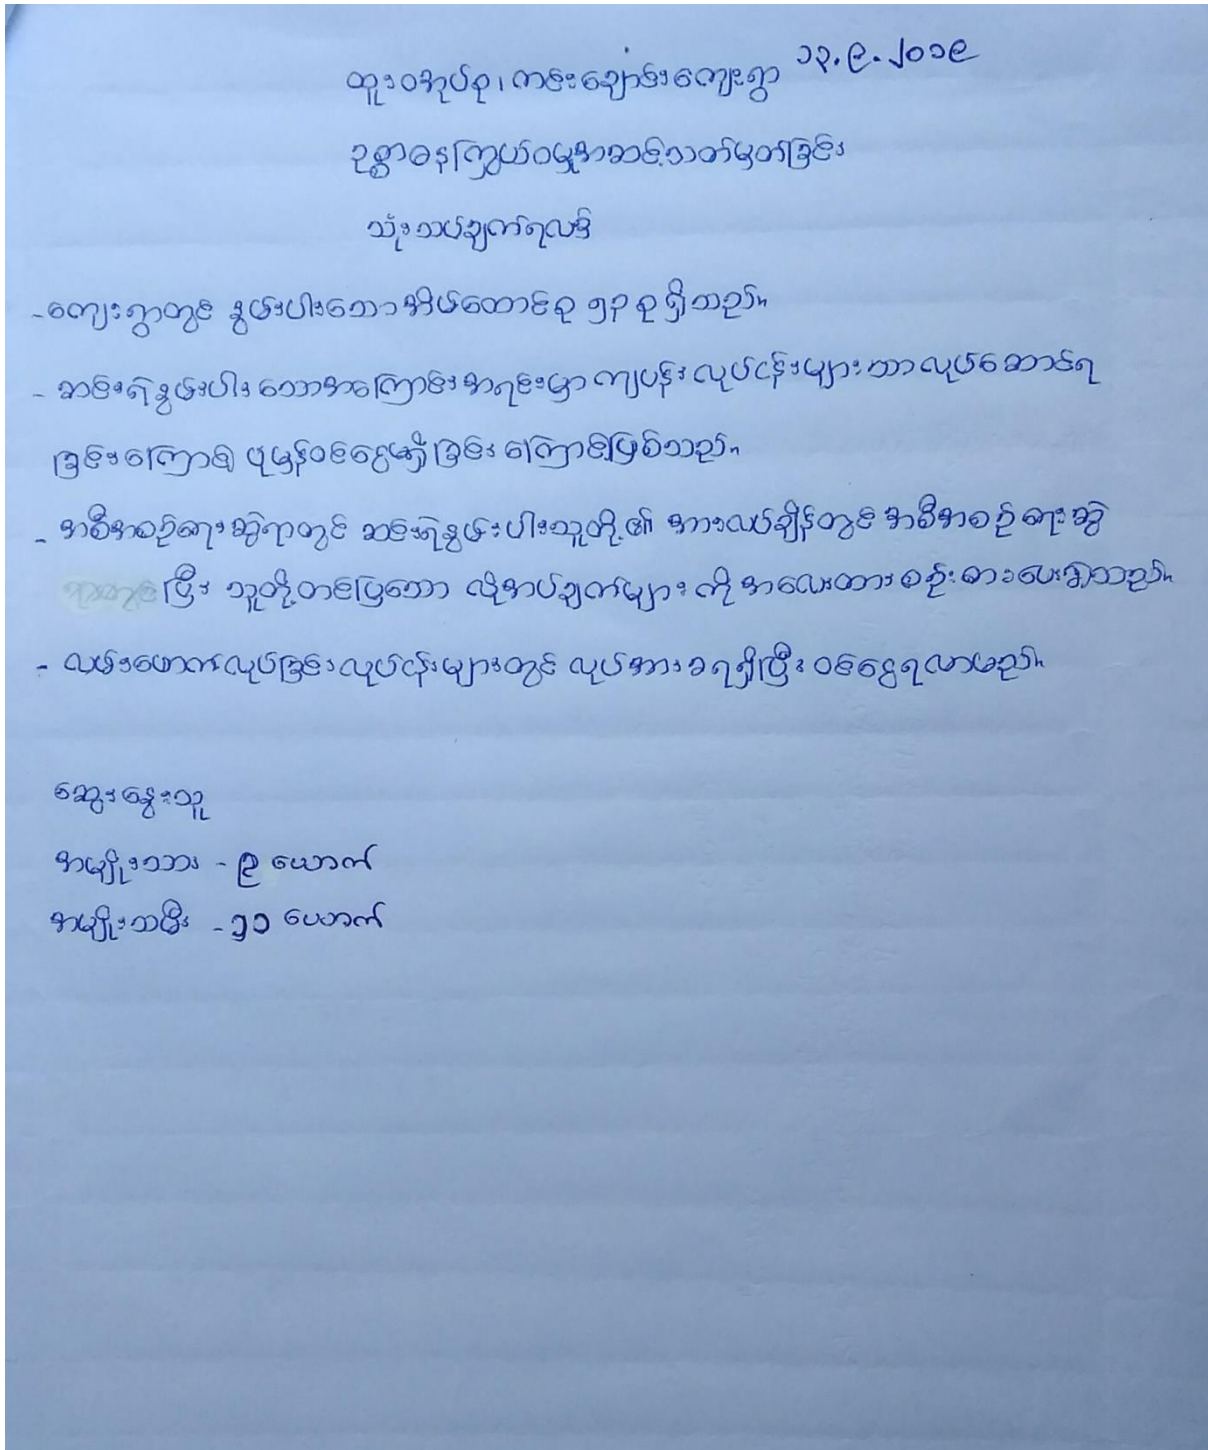 ၁၃.၉.၂၀၁၉
ထူးဝအုပ်စု၊ ကင်းချောင်းကျေးရွာ
ဥစ္စာဓနကြွယ်ဝမှုအဆင့်သတ်မှတ်ခြင်း
သုံးသပ်ချက်ရလဒ်
- ကျေးရွာတွင် နွမ်းပါးသောအိမ်ထောင်စု ၅၃ စု ရှိသည်။
- ဆင်းရဲနွမ်းပါးသောအကြောင်းအရင်းမှာ ကျပန်းလုပ်ငန်းများသာလုပ်ဆောင်ရ
ခြင်းကြောင့် ပုံမှန်ဝင်ငွေမရှိခြင်းကြောင့်ဖြစ်သည်။
- အစီအစဉ်ရေးဆွဲရာတွင် ဆင်းရဲနွမ်းပါးသူတို့၏ အားလပ်ချိန်တွင် အစီအစဉ်ရေးဆွဲ
ပြီး သူတို့တင်ပြသော လိုအပ်ချက်များကို အလေးထားစဉ်းစားပေးခဲ့သည်။
- လမ်းဖောက်လုပ်ခြင်းလုပ်ငန်းများတွင် လုပ်အားခရရှိပြီး ဝင်ငွေရလာမည်။
ဆွေးနွေးသူ
အမျိုးသား - ၉ ယောက်
အမျိုးသမီး - ၅၁ ယောက်